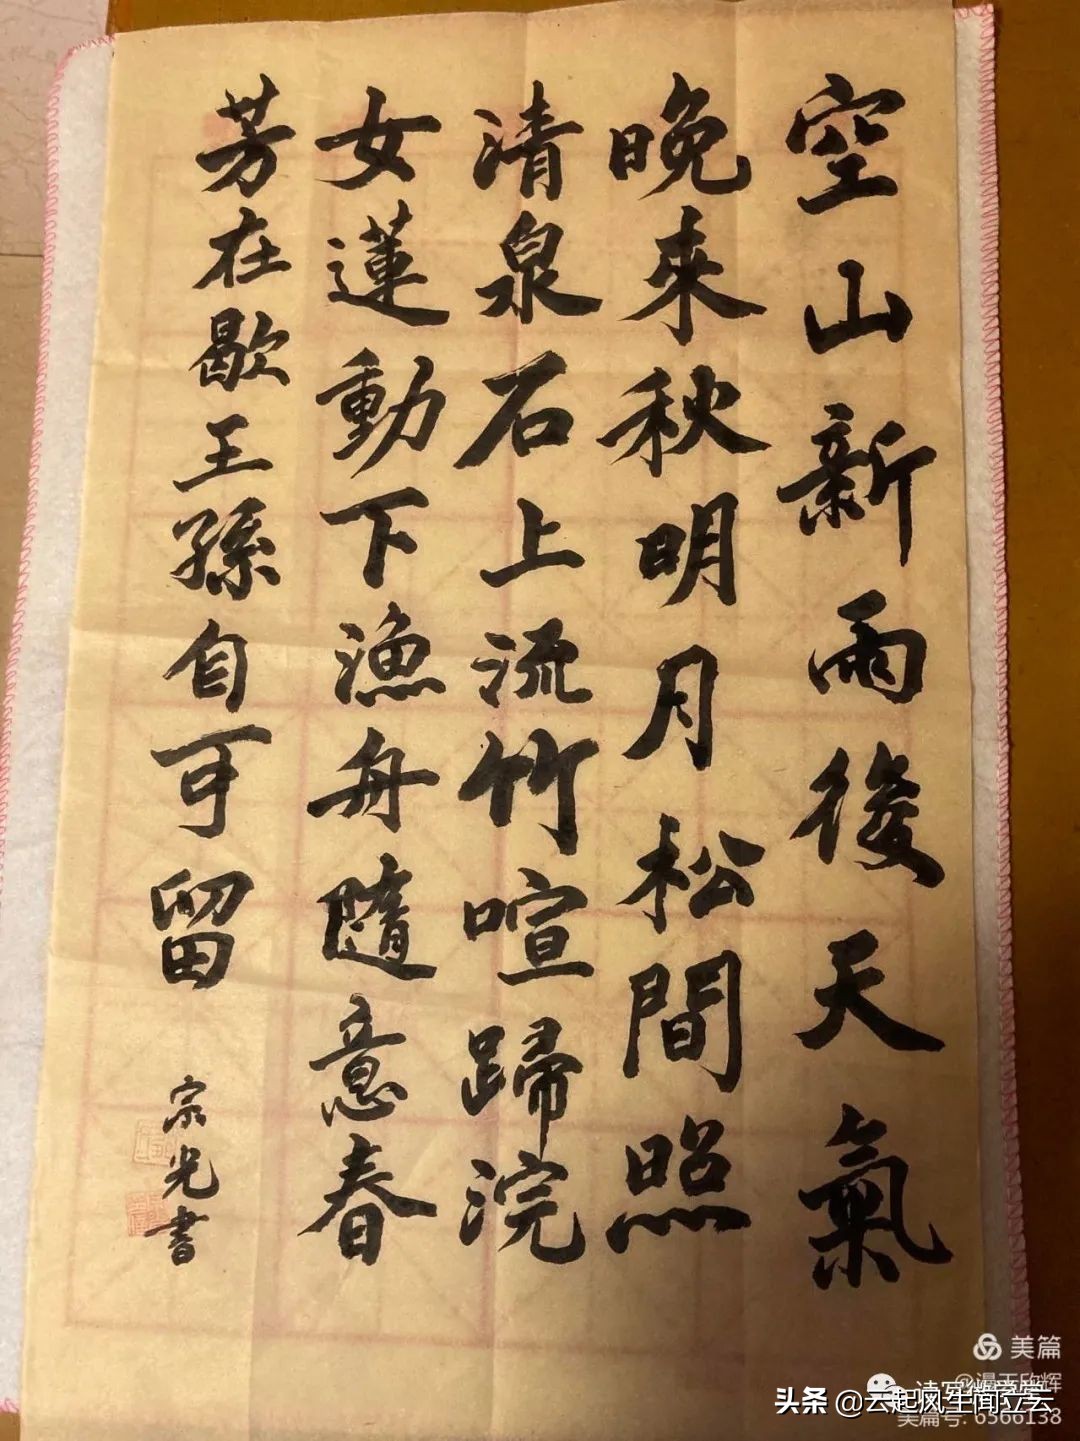 空山新雨後天氣
晚來秋明月松間照
清泉石上流竹喧歸浣
女蓮動下漁舟隨意春
芳在歇王孫自可留
宗光書
美篇
头条 @云起风生闻立云
美篇号: 6566138